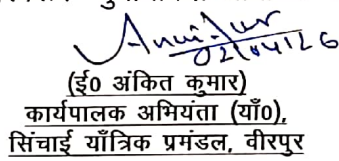 02/04/26
(ई0 अंकित कुमार)
कार्यपालक अभियंता (याँ0),
सिंचाई याँत्रिक प्रमंडल, वीरपुर